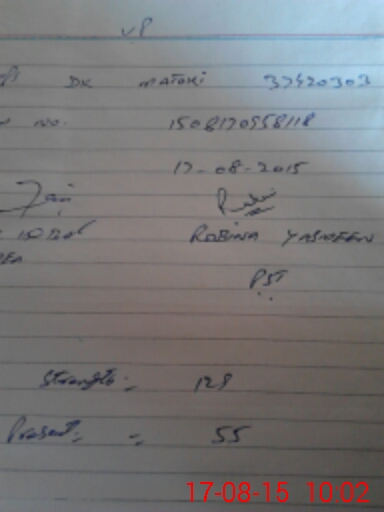 DK MATOKI 37420303
no. 1508170958118
17-08-2015
ROBINA YASMEEN
PST
Strength:- 129
Present:- 55
17-08-15 10:02